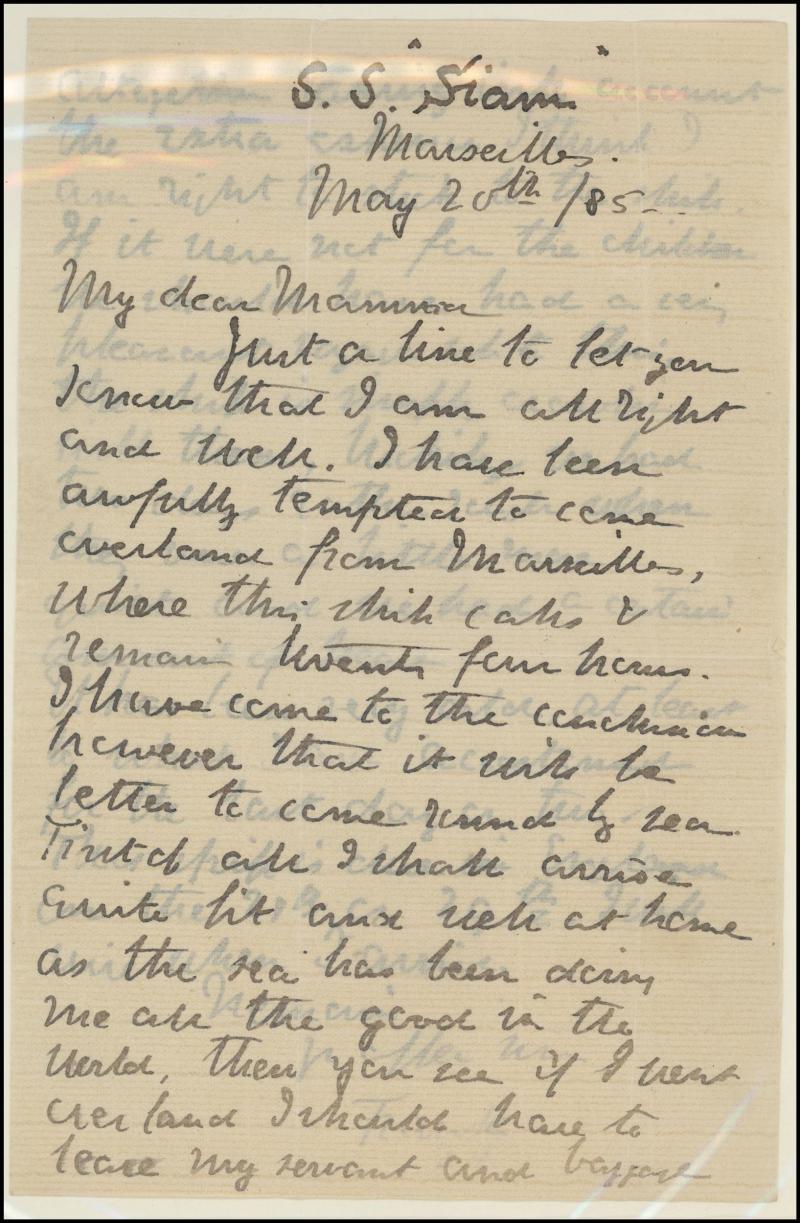 S. S. "Siam"
Marseilles.
May 20th /85
My dear Mamma
Just a line to let you
know that I am all right
and well. I have been
awfully tempted to come
overland from Marseilles,
where this ship calls &
remain twenty four hours.
I have come to the conclusion
however that it will be
better to come round by sea
First of all I shall arrive
quite fit and well at home
as the sea has been doing
me all the good in the
world, then you see if I went
overland I should have to
leave my servant and baggage